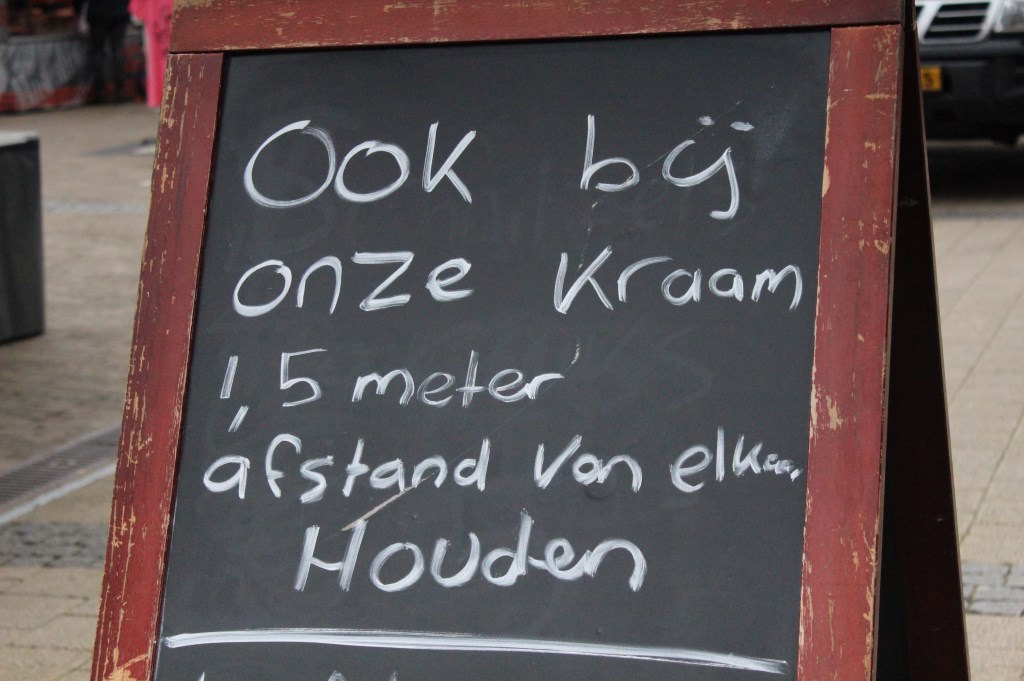 Ook bij
onze kraam
1,5 meter
afstand van elkaar
Houden